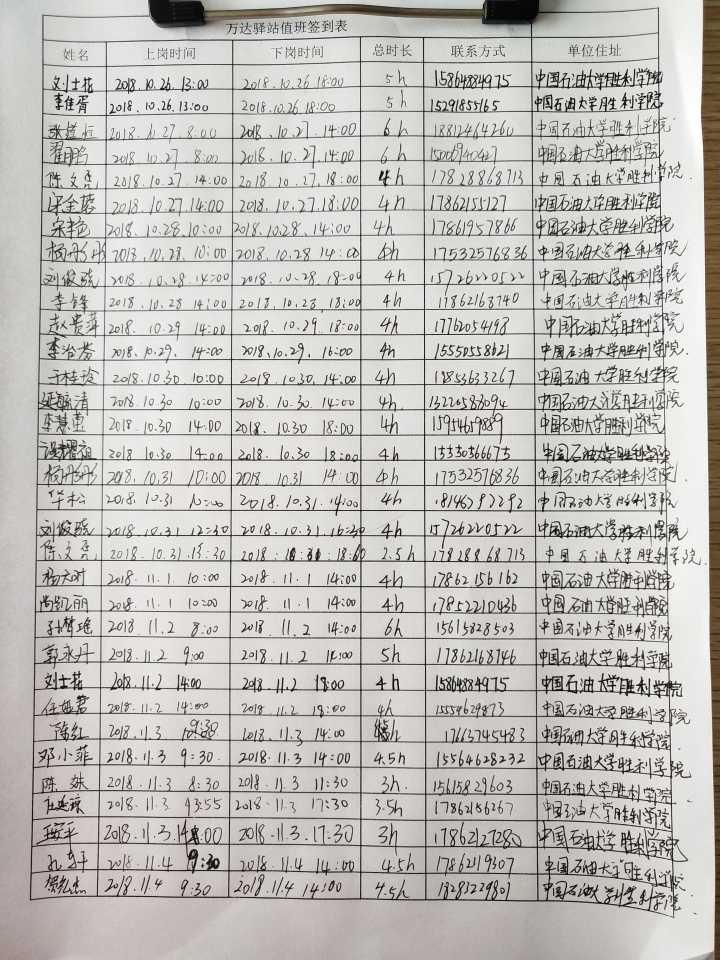 万达驿站值班签到表
姓名 上岗时间 下岗时间 总时长 联系方式 单位住址
刘士花 2018.10.26.13:00 2018.10.26.18:00 5h 15864884975 中国石油大学胜利学院
李佳霄 2018.10.26.13:00 2018.10.26.18:00 5h 15291855165 中国石油大学胜利学院
2018.10.27.8:00 2018.10.27.14:00 6h 18812464260 中国石油大学胜利学院
翟鹏 2018.10.27.8:00 2018.10.27.14:00 6h 中国石油大学胜利学院
陈文亮 2018.10.27.14:00 2018.10.27.18:00 4h 17828868713 中国石油大学胜利学院.
宋金蓉 2018.10.27.14:00 2018.10.27.18:00 4h 17862155127 中国石油大学胜利学院
宋艳 2018.10.28.10:00 2018.10.28.14:00 4h 17861957866 中国石油大学胜利学院
杨丹丹 2018.10.28.10:00 2018.10.28.14:00 17532576836 中国石油大学胜利学院
刘俊骁 2018.10.28.14:00 2018.10.28.18:00 4h 15726220522 中国石油大学胜利学院
李锋 2018.10.28 14:00 2018.10.28.18:00 4h 17862163740 中国石油大学胜利学院
赵贵萍 2018.10.29 14:00 2018.10.29.18:00 4h 17762054198 中国石油大学胜利学院
李治芬 2018.10.29. 14:00 2018.10.29.16:00 4h 15550558621 中国石油大学胜利学院.
于桂玲 2018.10.30.10:00 2018.10.30.14:00 4h 中国石油大学胜利学院
延毓清 2018.10.30 10:00 2018.10.30.14:00 4h. 13220583094 中国石油大学胜利学院
李慧莹 2018.10.30 14:00 2018.10.30.18:00 4h 中国石油大学胜利学院
2018.10.30 14:00 2018.10.30 18:00 4h 15550566675 中国石油大学胜利学院
杨丹彤 2018.10.31 10:00 2018.10.31 14:00 4h 17532576836 中国石油大学胜利学院.
华松 2018.10.31 10:00 2018.10.31.14:00 4h 18146292292 中国石油大学胜利学院
刘俊骁 2018.10.31 12:30 2018.10.31.16:30 4h 15726220522 中国石油大学胜利学院
陈文亮 2018.10.31.13:30 2.5h 17828868713 中国石油大学胜利学院.
杨天时 2018.11.1. 10:00 2018.11.1 14:00 4h 17862156162 中国石油大学胜利学院
尚凯丽 2018.11.1 10:00 2018.11.1 14:00 4h 17852210436 中国石油大学胜利学院
孙梦瑶 2018.11.2 8:00 2018.11.2 14:00 6h 15615828503 中国石油大学胜利学院
郭永丹 2018.11.2 9:00 2018.11.2 14:00 5h 17862168746 中国石油大学胜利学院
刘士花 2018.11.2 14:00 2018.11.2 18:00 4h 15864884975 中国石油大学胜利学院
任孟君 2018.11.2 14:00 2018.11.2 18:00 4h 15554629873 中国石油大学胜利学院
陈红 2018.11.3 9:30 2018.11.3 14:00 17663745483 中国石油大学胜利学院.
邓小菲 2018.11.3 9:30. 2018.11.3 14:00 4.5h 15564628232 中国石油大学胜利学院
陈姝 2018.11.3 8:30 2018.11.3 11:30 3h. 15615829603 中国石油大学胜利学院.
2018.11.3 13:55 2018.11.3 17:30 3.5h 17862156267 中国石油大学胜利学院
2018.11.3 2018.11.3.17:30 3h 17862127280 中国石油大学胜利学院
孔轩 2018.11.4 9:30 2018.11.4 14:00 4.5h 17862119307 中国石油大学胜利学院
2018.11.4 9:30 2018.11.4 14:00 4.5h 18283229801 中国石油大学胜利学院.